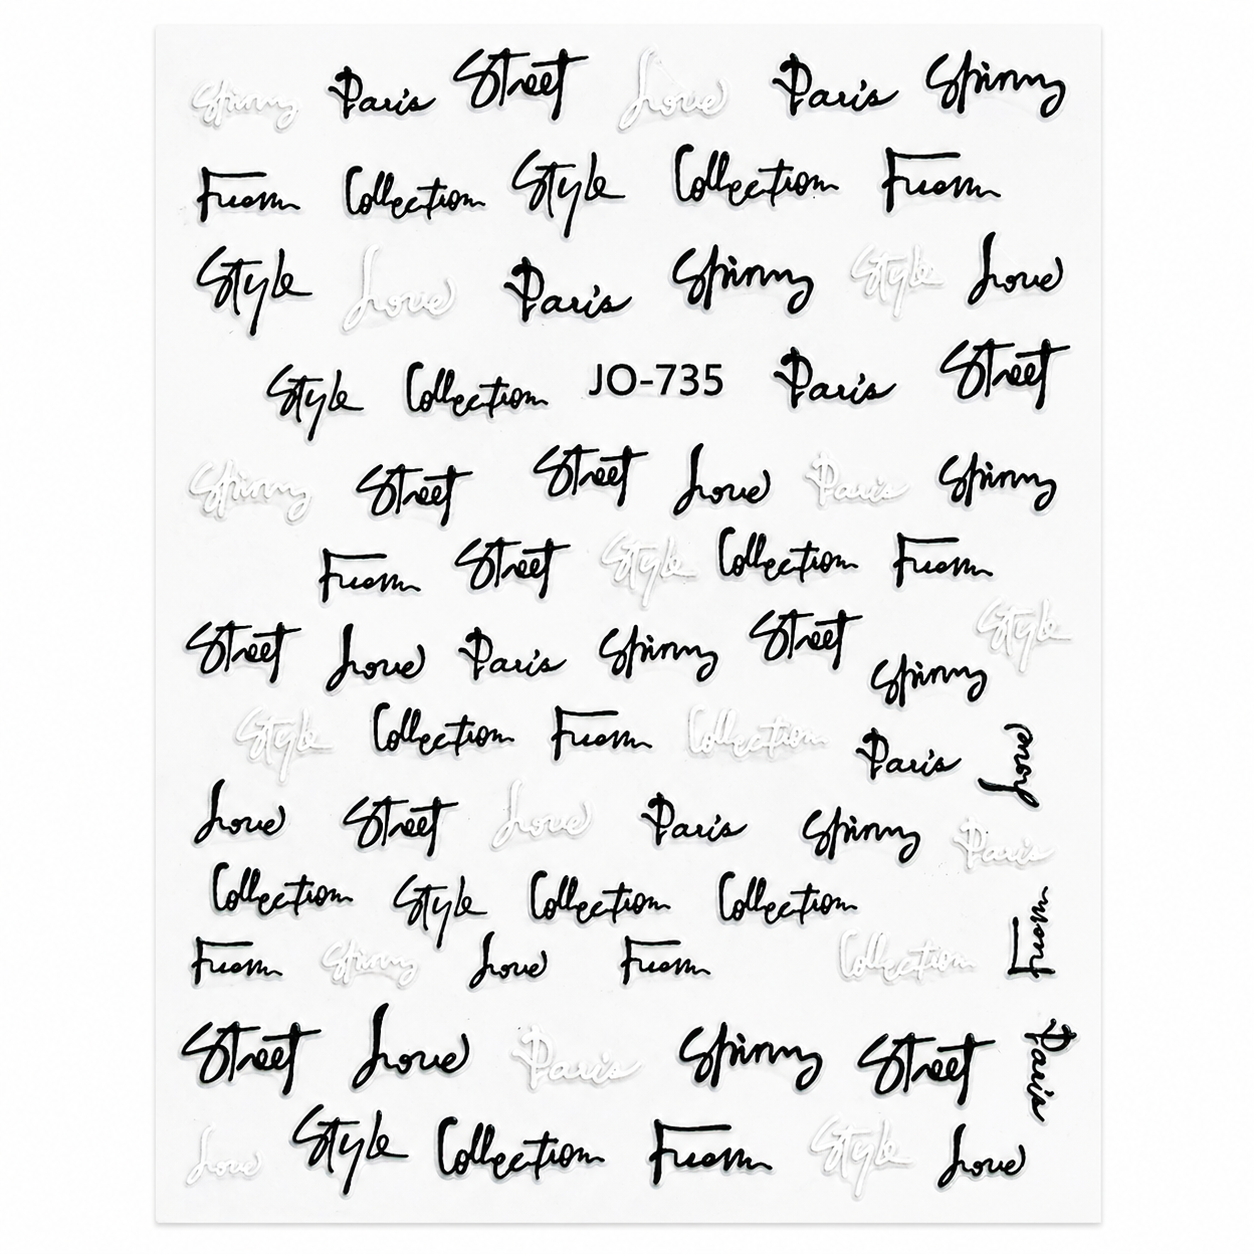 Spinny Paris Street Love Paris Spinny
Fuomn Collection Style Collection Fuomn
Style Love Paris Spinny Style Love
Style Collection JO-735 Paris Street
Spinny Street Street Love Paris Spinny
Fuomn Street Style Collection Fuomn
Street Love Paris Spinny Street Spinny Style
Style Collection Fuomn Collection Paris Love
Love Street Love Paris Spinny Paris
Collection Style Collection Collection
Fuomn Spinny Love Fuomn Collection Fuomn
Street Love Paris Spinny Street Paris
Love Style Collection Fuomn Style Love